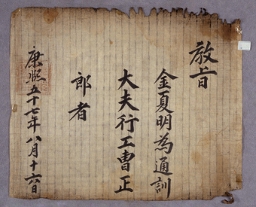 敎旨
金夏明為通訓
大夫行工曹正
郎者
康熙五十七年八月十六日